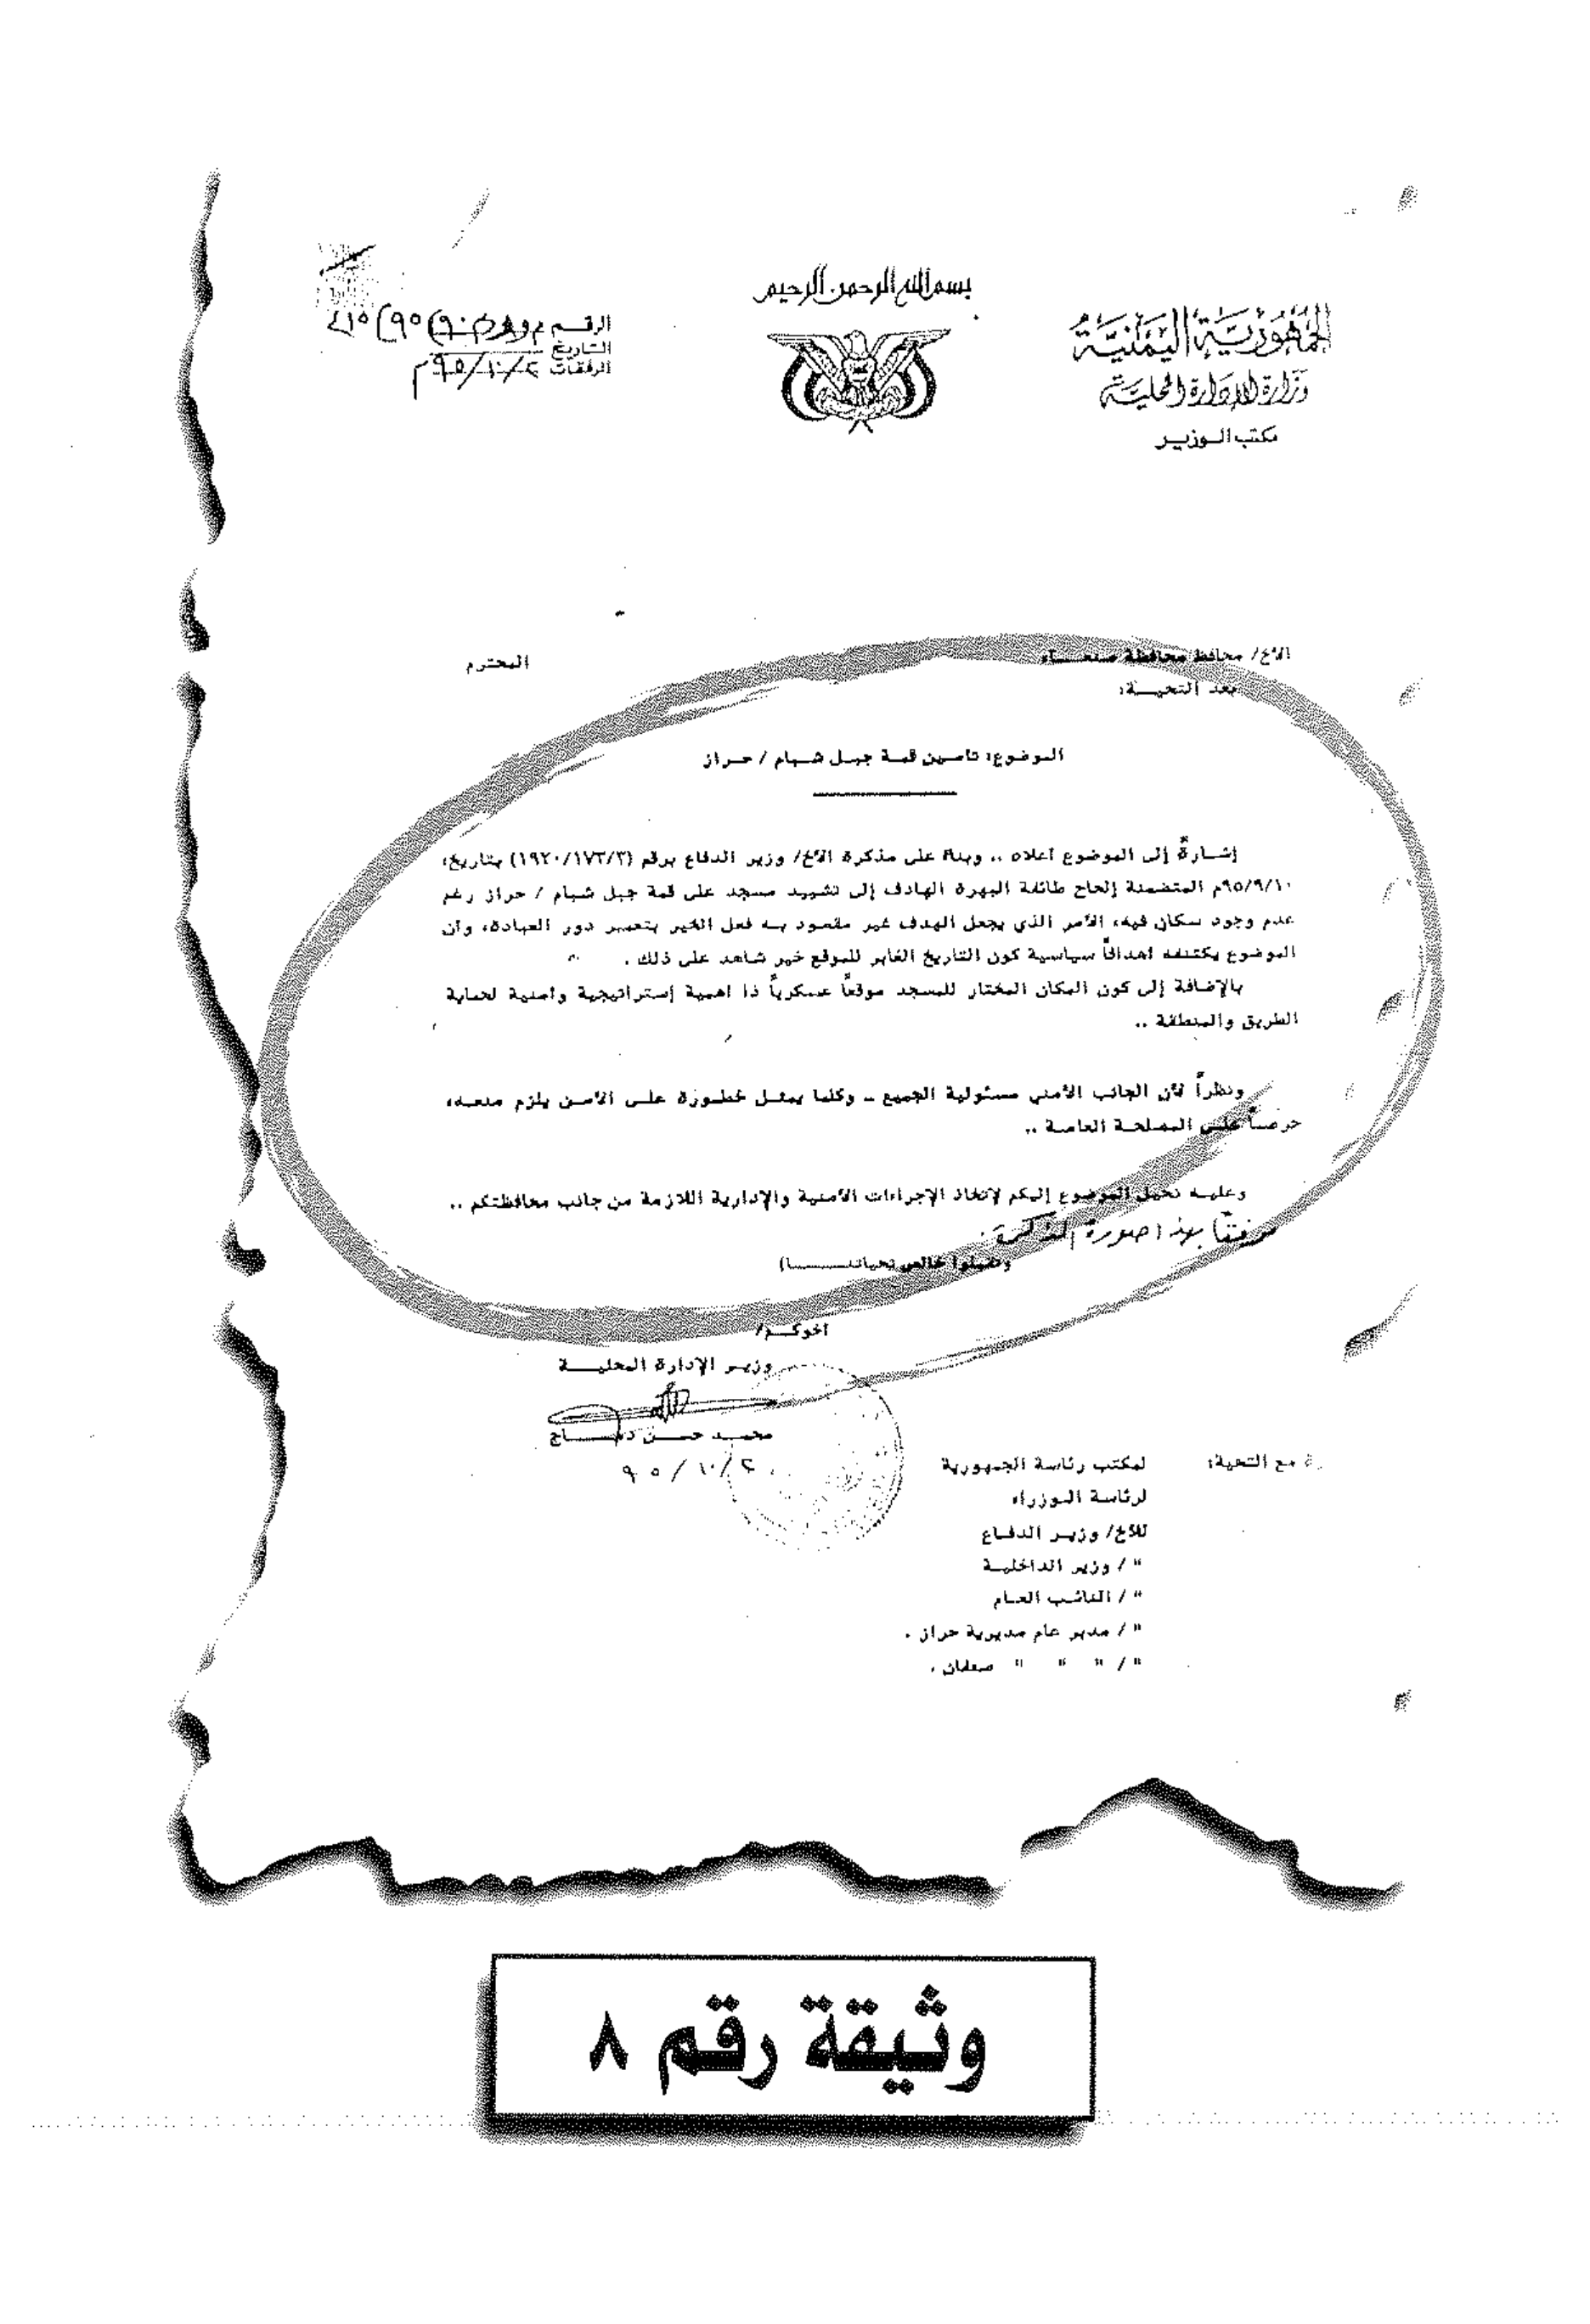 بسم الله الرحمن الرحيم
الجمهورية اليمنية
وزارة الإدارة المحلية
مكتب الوزير
الرقم
التاريخ ٩٥/١٠/٢م
المرفقات
الأخ/ محافظ محافظة صنعاء المحترم
بعد التحية:
الموضوع: تامين قمة جبل شبام / حراز
إشارةً إلى الموضوع اعلاه .. وبناء على مذكرة الأخ/ وزير الدفاع برقم (١٩٢٠/١٧٣/٣) بتاريخ:
٩٥/٩/١٠م المتضمنة إلحاح طائفة البهرة الهادف إلى تشييد مسجد على قمة جبل شبام / حراز رغم
عدم وجود سكان فيه، الأمر الذي يجعل الهدف غير مقصود به فعل الخير بتعمير دور العبادة، وأن
الموضوع يكتنفه اهدافاً سياسية كون التاريخ الغابر للموقع خير شاهد على ذلك .
بالإضافة إلى كون المكان المختار للمسجد موقعاً عسكرياً ذا اهمية إستراتيجية وامنية لحماية
الطريق والمنطقة ..
ونظراً لأن الجانب الأمني مسئولية الجميع - وكلما يمثل خطورة على الأمن يلزم منعه،
حرصاً على المصلحة العامة ..
وعليه نحيل الموضوع إليكم لإتخاذ الإجراءات الأمنية والإدارية اللازمة من جانب محافظتكم ..
مرفقاً بهذا صورة المذكرة .
وتقبلوا خالص تحياتنا)
أخوكم/
وزير الإدارة المحلية
محمد حسن دماج
٩٥/١٠/٢
ة مع التحية:
لمكتب رئاسة الجمهورية
لرئاسة الوزراء
للأخ/ وزير الدفاع
" / وزير الداخلية
" / النائب العام
" / مدير عام مديرية حراز .
" / " " " صعفان .
وثيقة رقم ٨